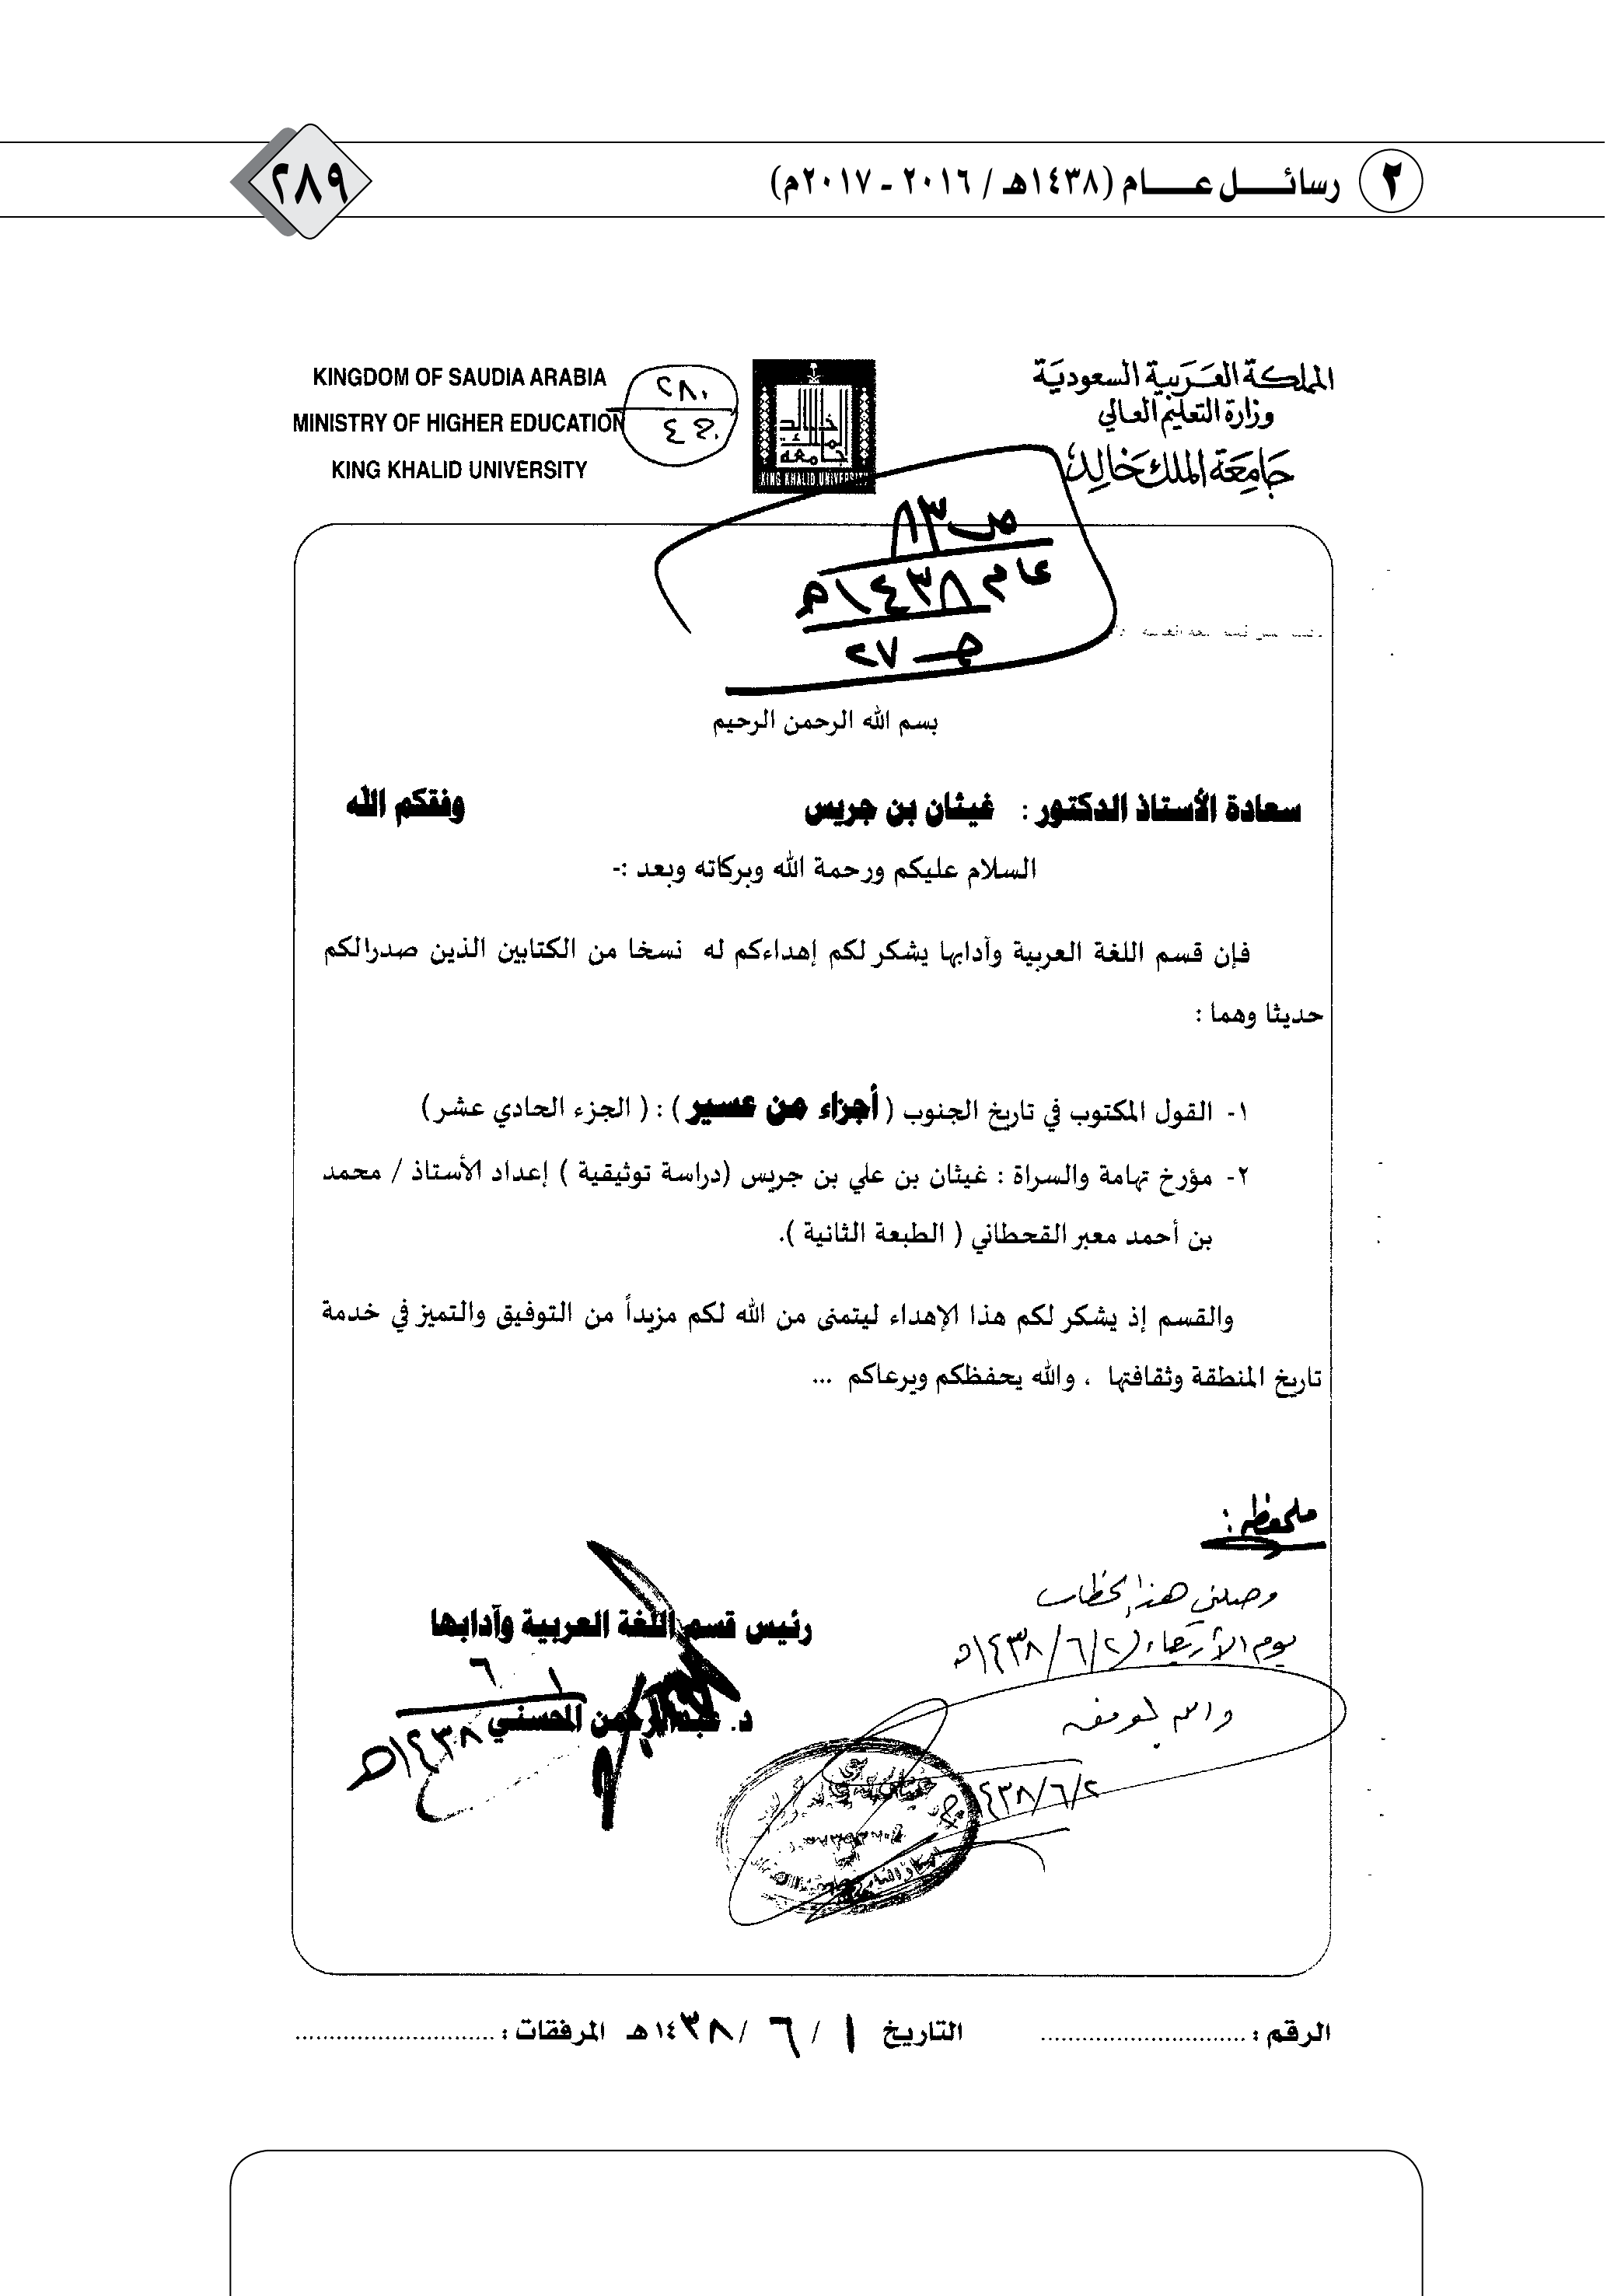 ٢ رسائـــل عـــام (١٤٣٨هـ / ٢٠١٦ - ٢٠١٧م)
٢٨٩
المملكة العربية السعودية
وزارة التعليم العالي
جامعة الملك خالد
خالد
الملك
جامعة
KING KHALID UNIVERSITY
KINGDOM OF SAUDIA ARABIA
MINISTRY OF HIGHER EDUCATION
KING KHALID UNIVERSITY
٢٨٠
ص ٨٣
عام ١٤٣٨هـ
جـ ٢٧
بسم الله الرحمن الرحيم
سعادة الأستاذ الدكتور : غيثان بن جريس وفقكم الله
السلام عليكم ورحمة الله وبركاته وبعد :-
فإن قسم اللغة العربية وآدابها يشكر لكم إهداءكم له نسخا من الكتابين الذين صدرالكم
حديثا وهما :
١- القول المكتوب في تاريخ الجنوب ( أجزاء من عسير ) : ( الجزء الحادي عشر )
٢- مؤرخ تهامة والسراة : غيثان بن علي بن جريس (دراسة توثيقية ) إعداد الأستاذ / محمد
بن أحمد معبر القحطاني ( الطبعة الثانية ).
والقسم إذ يشكر لكم هذا الإهداء ليتمنى من الله لكم مزيداً من التوفيق والتميز في خدمة
تاريخ المنطقة وثقافتها ، والله يحفظكم ويرعاكم ...
ملحوظة :
وصلني هذا الخطاب
يوم الأربعاء ١٤٣٨/٦/٢هـ
والله الموفق
١٤٣٨/٦/٢
رئيس قسم اللغة العربية وآدابها
١ ٦
١٤٣٨هـ
د. عبدالرحمن المحسني
الرقم : .............................. التاريخ ١ / ٦ / ١٤٣٨هـ المرفقات : ..............................